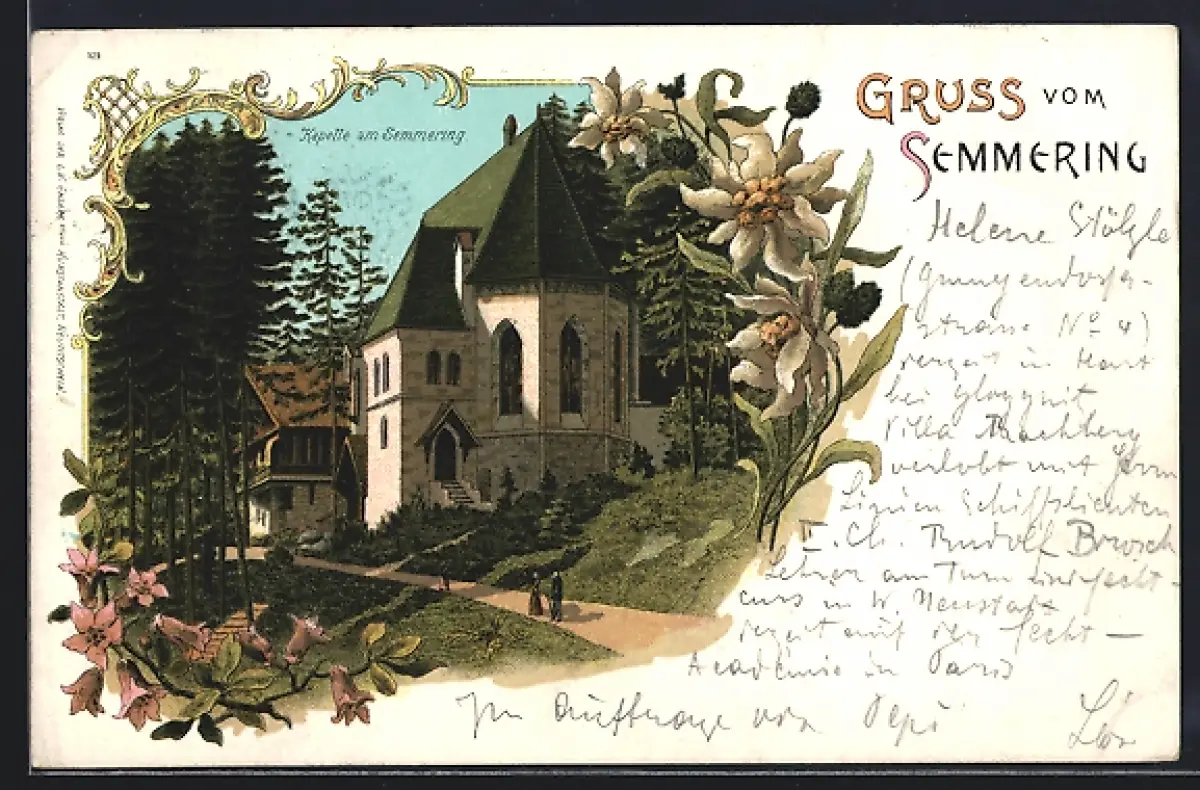 Kapelle am Semmering.
GRUSS VOM
SEMMERING
Helene Stölzle
(Gumpendorfer-
strasse No 4)
derzeit in Hart
bei Gloggnitz
Villa Rachberg
verlobt mit Herrn
Linien Schiffs
II. Cl. Rudolf Brosch
Lehrer am Turn und Fecht-
curs in W. Neustadt
dezeit auf der Fecht-
Academie in Paris
Im Auftrage von Pepi